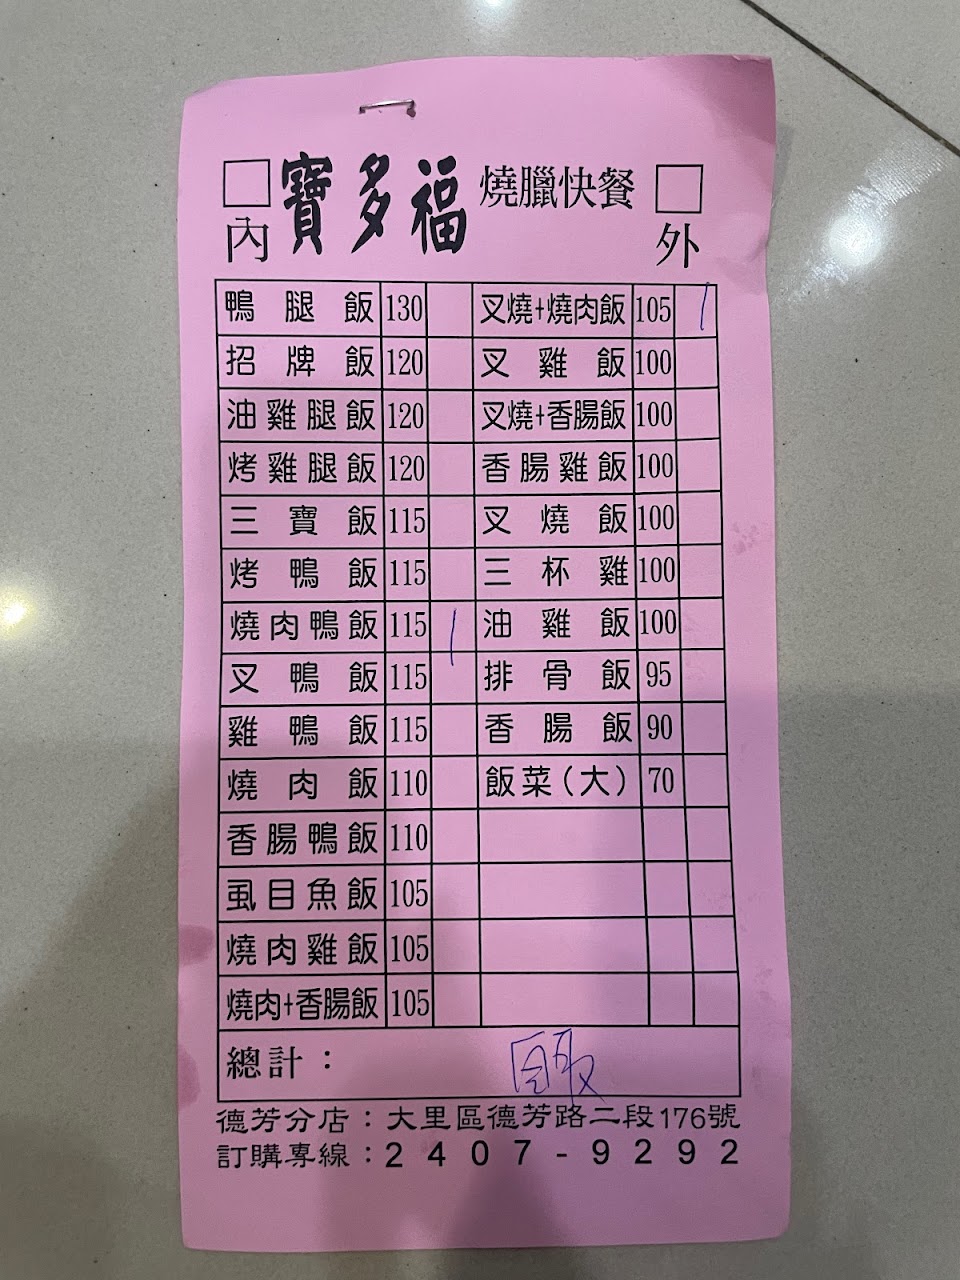 內 寶多福 燒臘快餐 外
鴨腿飯 130 叉燒+燒肉飯 105 /
招牌飯 120 叉雞飯 100
油雞腿飯 120 叉燒+香腸飯 100
烤雞腿飯 120 香腸雞飯 100
三寶飯 115 叉燒飯 100
烤鴨飯 115 三杯雞 100
燒肉鴨飯 115 / 油雞飯 100
叉鴨飯 115 排骨飯 95
雞鴨飯 115 香腸飯 90
燒肉飯 110 飯菜(大) 70
香腸鴨飯 110
虱目魚飯 105
燒肉雞飯 105
燒肉+香腸飯 105
總計：
德芳分店：大里區德芳路二段176號
訂購專線：2407-9292